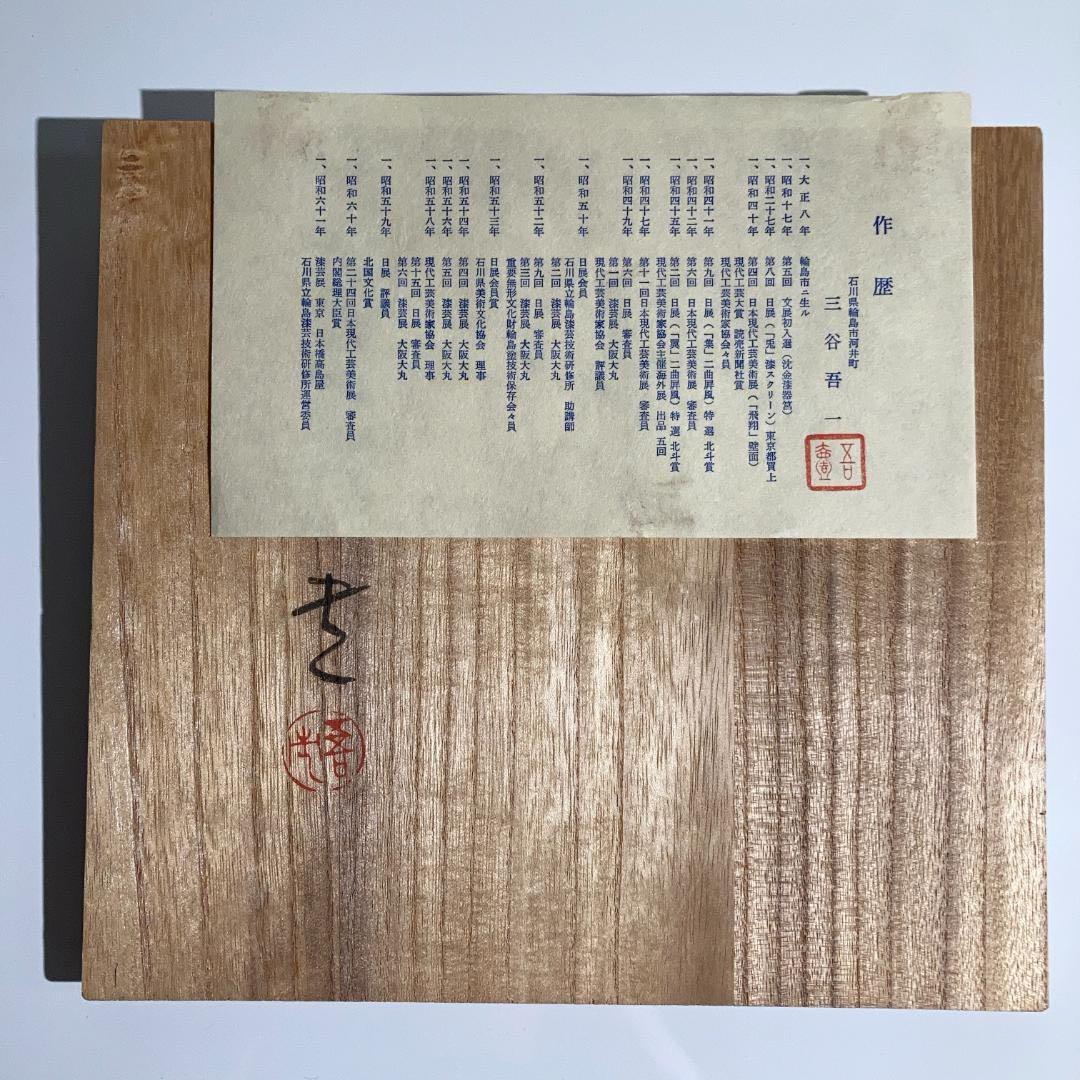 作歴
石川県輪島市河井町
三谷吾一
一、大正八年 輪島市ニ生ル
一、昭和十七年 第五回 文展初入選(沈金漆器筥)
一、昭和二十七年 第八回 日展(「兎」漆スクリーン)東京都買上
一、昭和四十年 第四回 日本現代工芸美術展(「飛翔」壁面)
現代工芸大賞 読売新聞社賞
現代工芸美術家協会々員
一、昭和四十一年 第九回 日展(「集」二曲屏風)特選 北斗賞
一、昭和四十二年 第六回 日本現代工芸美術展 審査員
一、昭和四十五年 第二回 日展(「翼」二曲屏風)特選 北斗賞
現代工芸美術家協会主催海外展 出品 五回
一、昭和四十七年 第十一回日本現代工芸美術展 審査員
一、昭和四十九年 第六回 日展 審査員
第一回 漆芸展 大阪大丸
現代工芸美術家協会 評議員
一、昭和五十年 日展会員
石川県立輪島漆芸技術研修所 助講師
第二回 漆芸展 大阪大丸
一、昭和五十二年 第九回 日展 審査員
第三回 漆芸展 大阪大丸
重要無形文化財輪島塗技術保存会々員
一、昭和五十三年 日展会員賞
石川県美術文化協会 理事
一、昭和五十四年 第四回 漆芸展 大阪大丸
一、昭和五十六年 第五回 漆芸展 大阪大丸
一、昭和五十八年 現代工芸美術家協会 理事
第十五回 日展 審査員
第六回 漆芸展 大阪大丸
一、昭和五十九年 日展 評議員
北国文化賞
一、昭和六十年 第二十四回日本現代工芸美術展 審査員
内閣総理大臣賞
一、昭和六十一年 漆芸展、東京 日本橋高島屋
石川県立輪島漆芸技術研修所運営委員